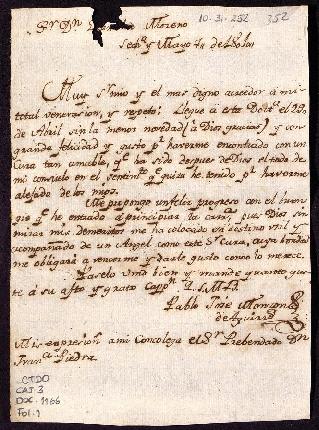 10-3-252 352
Sr. Dn. Moreno
y Mayo 4 de
Muy Sr. mio y el mas digno acreedor á mi
total veneracion, y respeto: Llegué a esta Doctª. el 29
de Abril sin la menor novedad (á Dios gracias) y con
grande felicidad y gusto pr. haverme encontrado con un
Cura tan amable, qe. ha sido despues de Dios el todo de
mi consuelo en el sentimto. qe. he tenido pr. haverme
alejado de los mios.
Me prometo un feliz progreso con el buen
qe. he entrado á principiar la carrª. pues Dios sin
mirar mis demeritos me ha colocado en destino util y
acompañado de un Angel como este Sr. Cura, cuya bondad
me obligará a venerarme y darle gusto como lo merece.
Páselo Vmd bien y mande quanto gus-
te á su afto. y grato Cappn. Q.S.M.B.
Pablo José
de
Mis expresions a mi Concolega el Sr. Prebendado Dn.
Franco. Piedra.
CTDO
CAJ. 3
DOC. 1966
Fol. 1